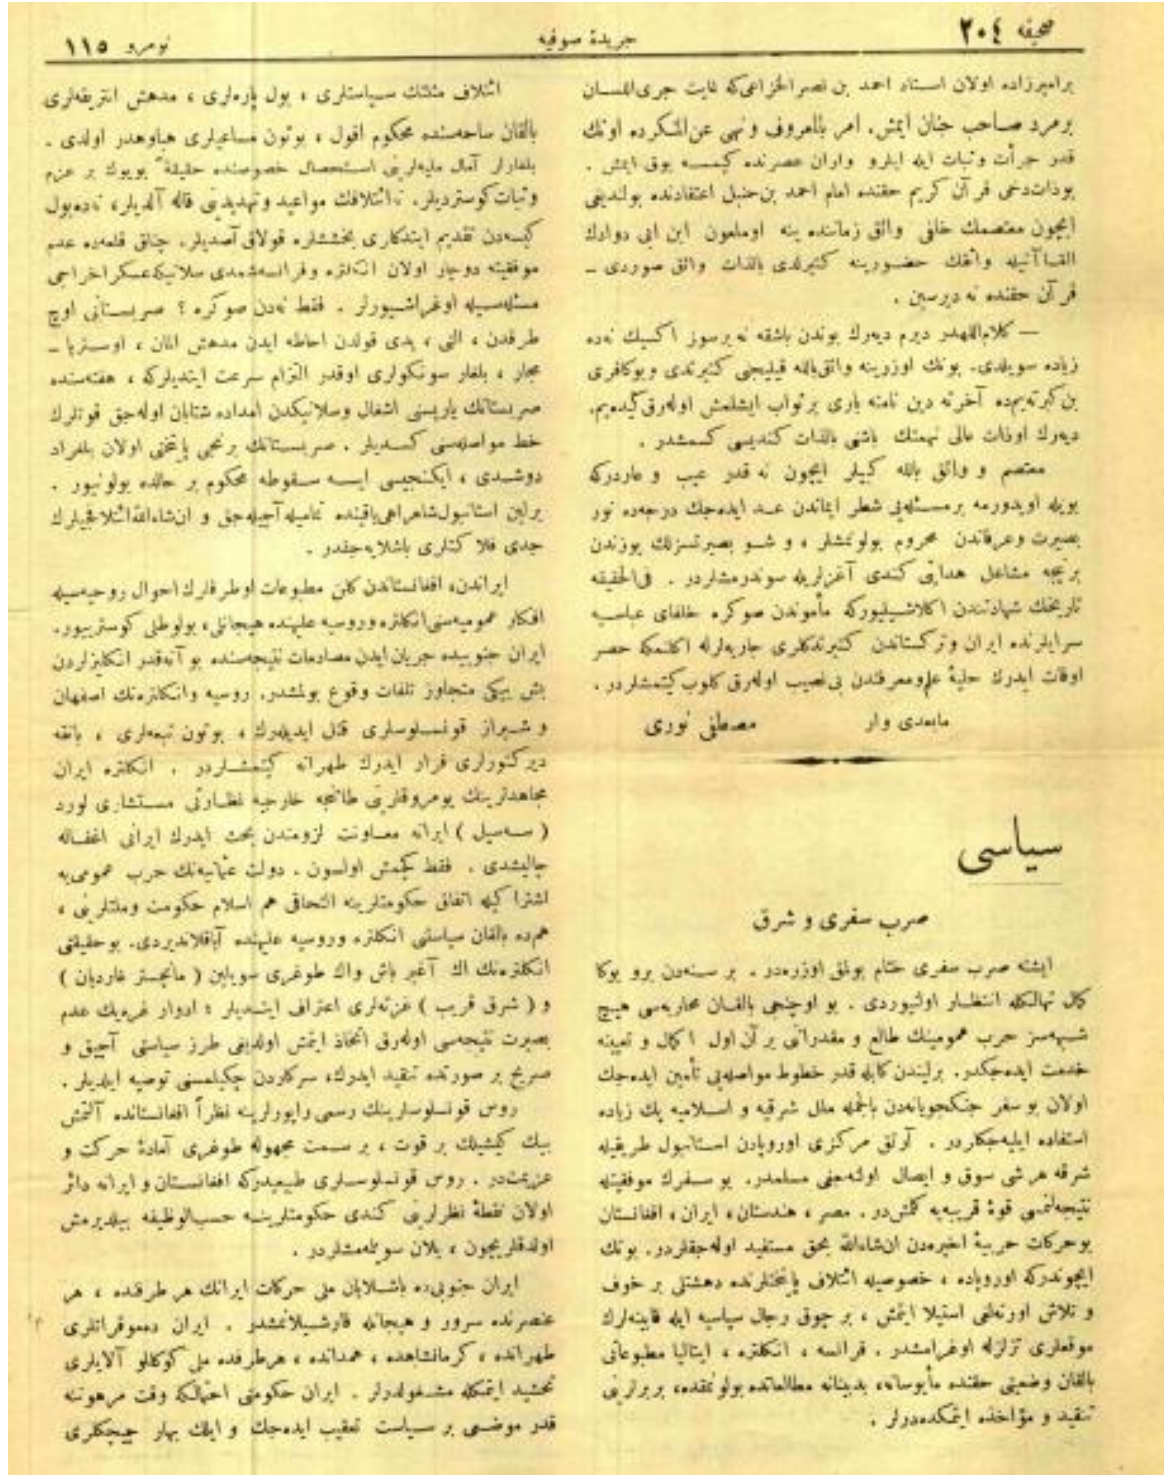 صحیفه ٢٠٤
جریدهٔ صوفیه
نومرو ١١٥
برامیرزاده اولان استاد احمد بن نصر الخزاعی‌که غایت جری‌اللسان
برمرد صاحب جنان ایمش. امر بالمعروف ونهی عن‌المنکرده اونك
قدر جرأت وثبات ایله ایلرو واران عصرنده کیمسه یوق ایمش .
بوذات‌دخی قرآن کریم حقنده امام احمد بن‌حنبل اعتقادنده بولندیغی
ایچون معتصمك خلفی واثق زماننده ینه اوملعون ابن ابی دوادك
القاآتیله واثقك حضورینه کتیرلدی بالذات واثق صوردی ـ
قرآن حقنده نه دیرسین .
— کلام‌اللهدر دیرم دیه‌رك بوندن باشقه نه برسوز اکسیك نه‌ده
زیاده سویلدی. بونك اوزرینه واثق‌بالله قیلیجی کتیرتدی وبوکافری
بن کبرته‌یم‌ده آخرته دین نامنه باری برثواب ایشلمش اوله‌رق‌کیده‌یم.
دیه‌رك اوذات عالی نهمتك باشی بالذات کندیسی کسمشدر .
معتصم و واثق بالله کبیلر ایچون نه قدر عیب و عاردرکه
بویله اویدورمه برمسئله‌یی شطر ایماندن عد ایده‌جك درجه‌ده نور
بصیرت وعرفاندن محروم بولونمشلر ، و شو بصیرتسزلك یوزندن
برنیجه مشاعل هدایتی کندی آغزلریله سوندرمشلردر . فی‌الحقیقه
تاریخك شهادتندن اکلاشیلیورکه مأموندن صوکره خلفای عباسیه
سرایلرنده ایران وترکستاندن کتیرتدکلری جاریه‌لرله اکلنمکه حصر
اوقات ایدرك حلیهٔ علم‌ومعرفتدن بی‌نصیب اوله‌رق کلوب کیتمشلردر.
مابعدی وار
مصطفی نوری
سیاسی
صرب سفری و شرق
ایشته صرب سفری ختام بولمق اوزره‌در . بر سنه‌دن برو بوکا
کمال تهالکله انتظار اولنیوردی . بو اوچنجی بالقان محاربه‌سی هیچ
شبهه‌سز حرب عمومینك طالع و مقدراتی بر آن اول اکمال و تعیینه
خدمت ایده‌جکدر. برلیندن کابله قدر خطوط مواصله‌یی تأمین ایده‌جك
اولان بو سفر جنکجویانه‌دن بالجمله ملل شرقیه و اسلامیه پك زیاده
استفاده ایلیه‌جکلردر . آرتق مرکزی اوروپادن استانبول طریقیله
شرقه هر شی سوق و ایصال اولنه‌جغی مسلمدر. بو سفرك موفقیتله
نتیجه‌لنمسی قوهٔ قریبه‌یه کلمش‌در. مصر ، هندستان، ایران ، افغانستان
بوحرکات حربیهٔ اخیره‌دن ان‌شاءالله بحق مستفید اوله‌جقلردر. بونك
ایچوندرکه اوروپاده ، خصوصیله ائتلاف پایتختلرنده دهشتلی بر خوف
و تلاش اورته‌لغی استیلا ایتمش ، بر چوق رجال سیاسیه ایله قابینه‌لرك
موقعلری تزلزله اوغرامشدر . فرانسه ، انکلتره ، ایتالیا مطبوعاتی
بالقان وضعیتی حقنده مأیوسانه، بدبینانه مطالعاتده بولونمقده، بربرلرینی
تنقید و مؤاخذه ایتمکده‌درلر .
ائتلاف مثلثك سیاستلری ، بول پاره‌لری ، مدهش انتریقه‌لری
بالقان ساحه‌سنده محکوم افول ، بوتون مساعیلری هباوهدر اولدی .
بلغارلر آمال ملیه‌لرینی استحصال خصوصنده حقیقةً بویوك بر عزم
وثبات کوستردیلر. نه‌ائتلافك مواعید وتهدیدینی قاله آلدیلر، نه‌ده‌بول
کیسه‌دن تقدیم ایتدکلری بخششلره قولاق آصدیلر. چناق قلعه‌ده عدم
موفقیته دوچار اولان انکلتره و فرانسه‌شمدی سلانیکه‌عسکر اخراجی
مسئله‌سیله اوغراشیورلر . فقط نه‌دن صوکره ؟ صربستانی اوچ
طرفدن ، التی ، یدی قولدن احاطه ایدن مدهش المان ، اوستریا ـ
مجار ، بلغار سونکولری اوقدر التزام سرعت ایتدیلرکه ، هفته‌سنده
صربستانك یاریسنی اشغال وسلانیکدن امداده شتابان اوله‌جق قوتلرك
خط مواصله‌سنی کسدیلر . صربستانك برنجی پایتختی اولان بلغراد
دوشدی ، ایکنجیسی ایسه سقوطه محکوم بر حالده بولونیور .
برلین استانبول‌شاهراهی‌یاقینده تمامیله‌آچیله‌جق و ان‌شاءالله‌ائتلافجیلرك
جدی فلاکتلری باشلایه‌جقدر .
ایراندن، افغانستاندن کلن مطبوعات اوطرفلرك احوال روحیه‌سیله
افکار عمومیه‌سنی‌انکلتره وروسیه علیهنده هیجانلی، بولوطلی کوسترییور.
ایران جنوبنده جریان ایدن مصادمات نتیجه‌سنده بو آنه‌قدر انکلیزلردن
بش بیکی متجاوز تلفات وقوع بولمشدر. روسیه وانکلتره‌نك اصفهان
و شیراز قونسلوسلری قتل ایدیله‌رك ، بوتون تبعه‌لری ، بانقه
دیرکتورلری فرار ایدرك طهرانه کیتمشلردر . انکلتره ایران
مجاهدلرینك یومروقلرینی طاتنجه خارجیه نظارتی مستشاری لورد
( سه‌سیل ) ایرانه معاونت لزومندن بحث ایدرك ایرانی اغفاله
چالیشدی . فقط کچمش اولسون . دولت عثمانیه‌نك حرب عمومی‌یه
اشتراکیله اتفاق حکومتلرینه التحاقی هم اسلام حکومت وملتلرینی ،
هم‌ده بالقان سیاستنی انکلتره وروسیه علیهنده آیاقلاندیردی. بوحقیقتی
انکلتره‌نك اك آغیر باش واك طوغری سویلین ( مانچستر غاردیان )
و ( شرق قریب ) غزته‌لری اعتراف ایتدیلر ؛ ادوار غره‌یك عدم
بصیرت نتیجه‌سی اوله‌رق اتخاذ ایتمش اولدیغی طرز سیاستی آچیق و
صریح بر صورتده تنقید ایدرك، سرکاردن چکیلمسنی توصیه ایلدیلر .
روس قونسلوسلرینك رسمی راپورلرینه نظراً افغانستانده آلتمش
بیك کیشیلك بر قوت ، بر سمت مجهوله طوغری آمادهٔ حرکت و
عزیمت‌در . روس قونسلوسلری طبیعیدرکه افغانستان و ایرانه دائر
اولان نقطهٔ نظرلرینی کندی حکومتلرینه حسب‌الوظیفه بیلدیرمش
اولدقلریچون ، یلان سویله‌مشلردر .
ایران جنوبی‌ده باشلایان ملی حرکات ایرانك هر طرفنده ، هر
عنصرنده سرور و هیجانله قارشیلانمشدر . ایران ده‌موقراتلری
طهرانده ، کرمانشاهده ، همدانده ، هرطرفده ملی کوکللو آلایلری
تحشید ایتمکله مشغولدرلر . ایران حکومتی احتمالکه وقت مرهوننه
قدر موضعی بر سیاست تعقیب ایده‌جك و ایلك بهار چیچکلری